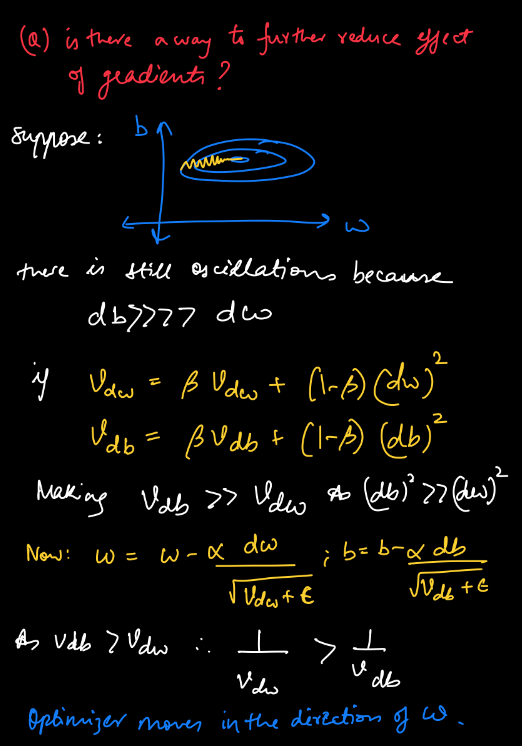 (Q) is there a way to further reduce effect
of gradients?
suppose:
b
w
there is still oscillations because
db >>>> dw
if V_dw = β V_dw + (1-β) (dw)²
V_db = β V_db + (1-β) (db)²
Making V_db >> V_dw as (db)² >> (dw)²
Now: w = w - α dw / √(V_dw + ε) ; b = b - α db / √(V_db + ε)
As V_db > V_dw ∴ 1 / V_dw > 1 / V_db
Optimizer moves in the direction of w.